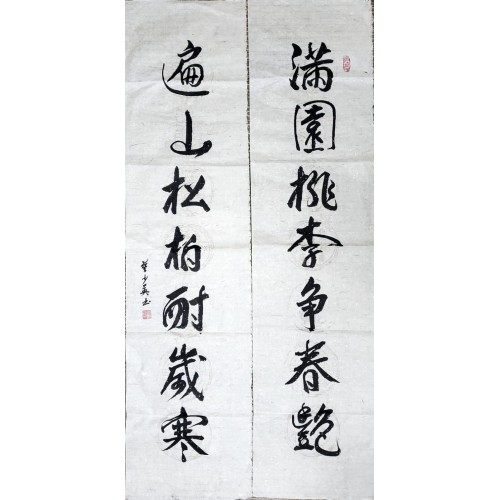 满園桃李争春艷
遍山松柏耐歲寒